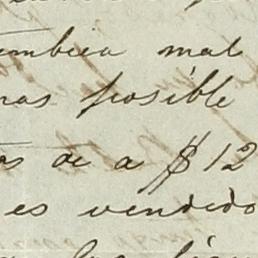 mbien mal
mas posible
os de a $12
es vendido